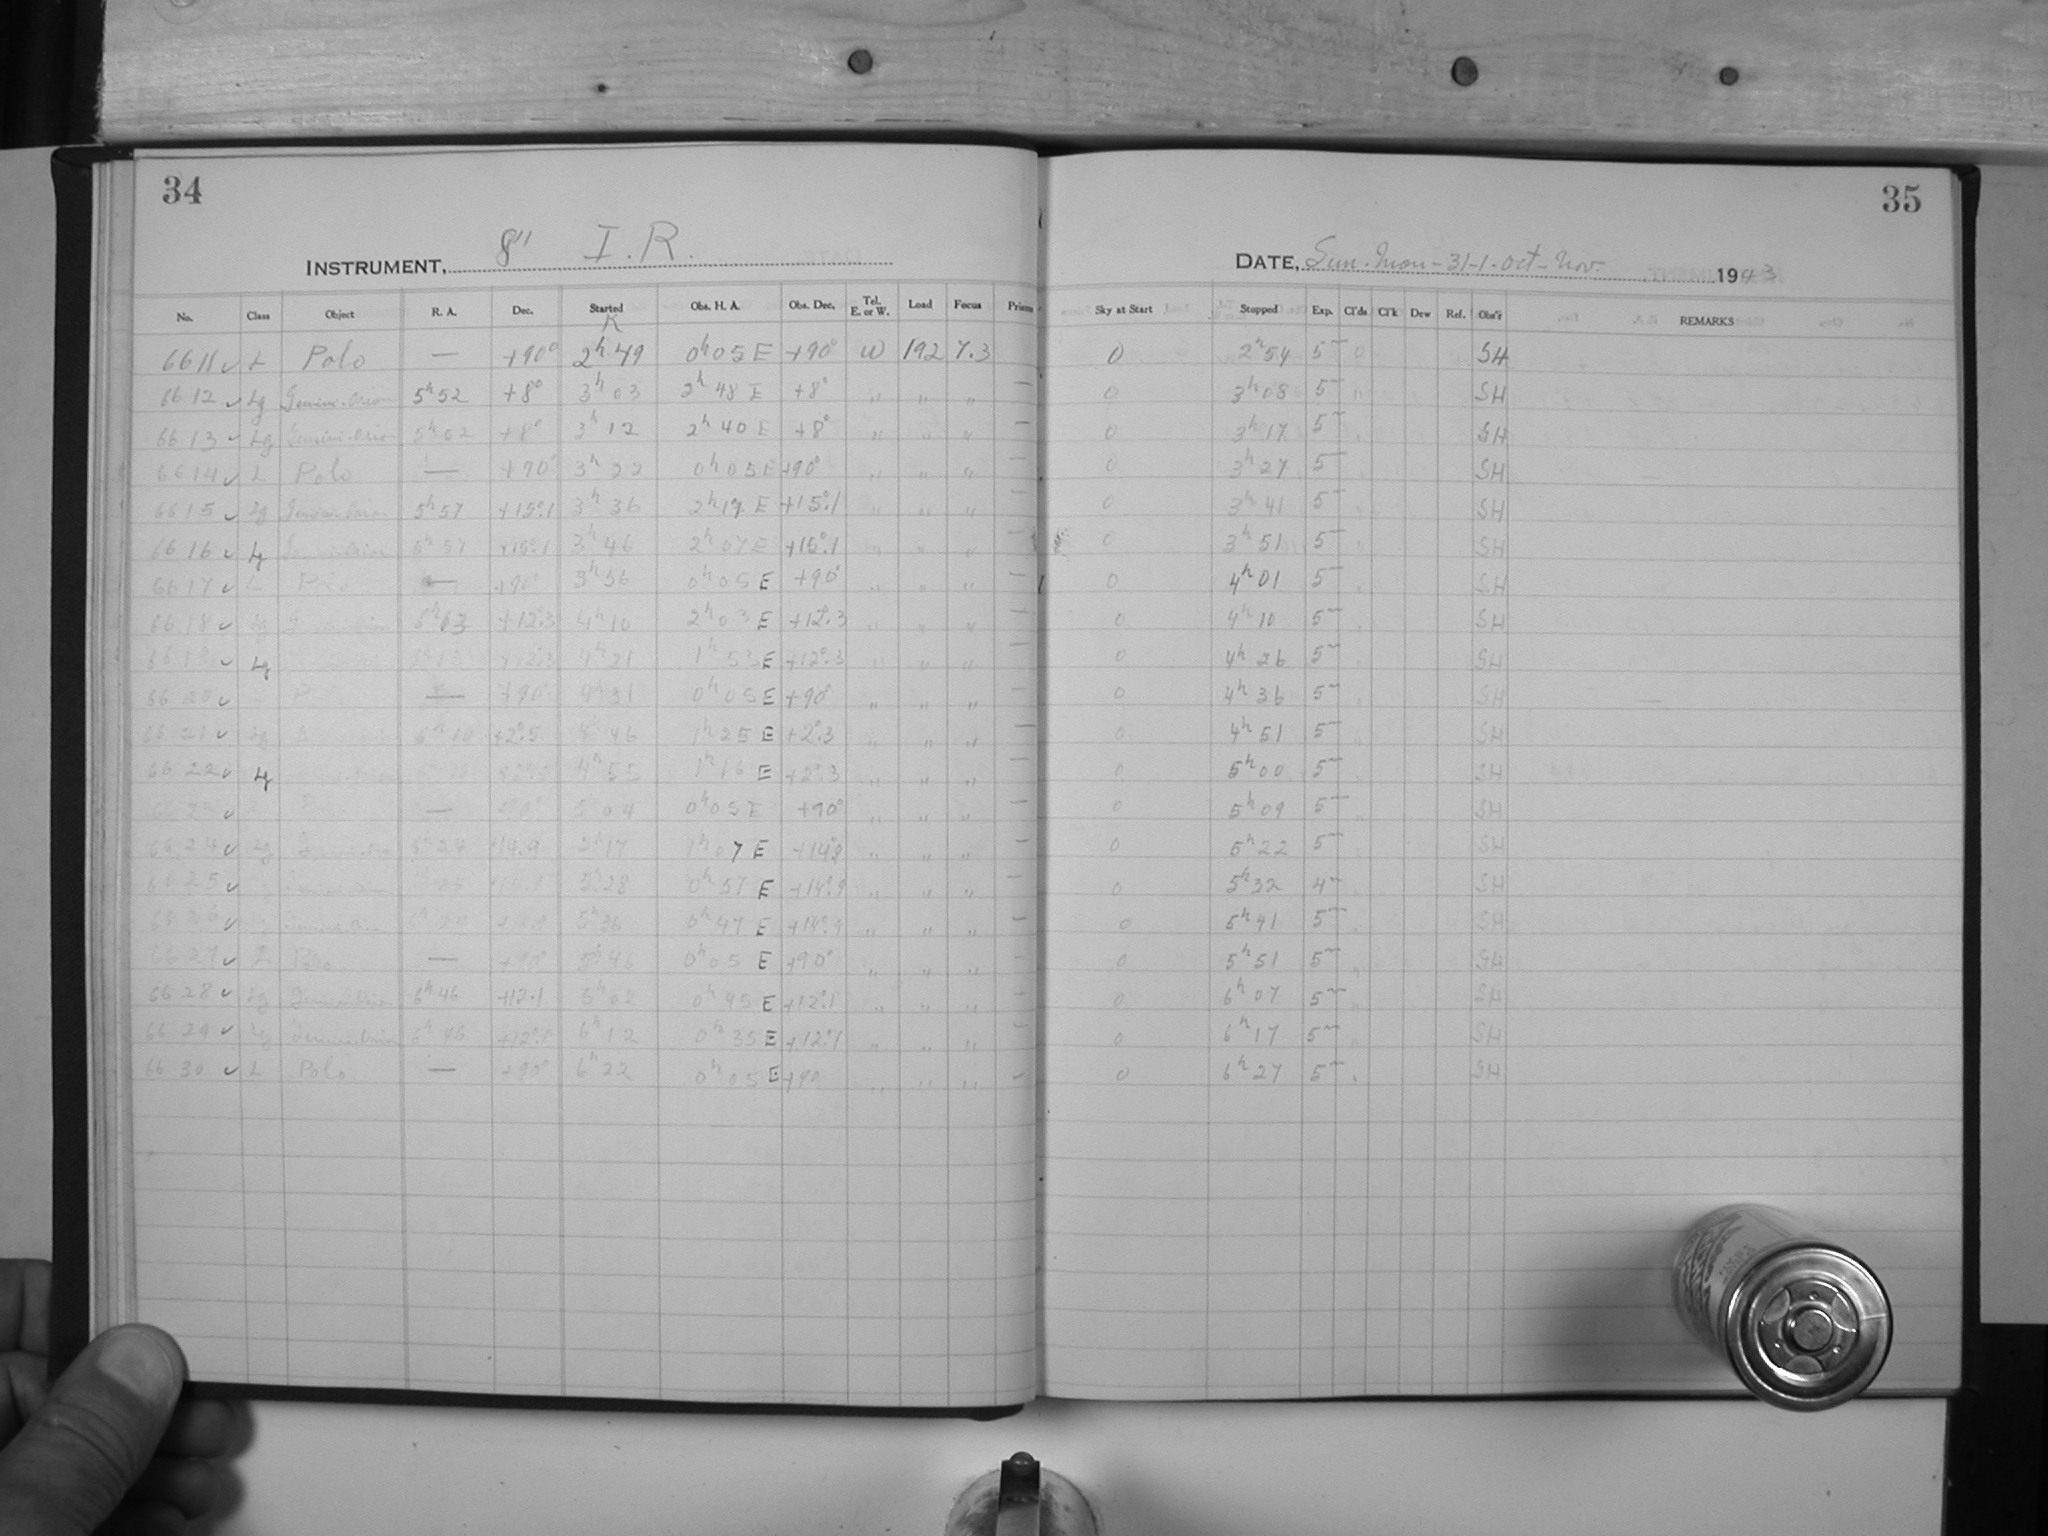 34
35
INSTRUMENT, 8" I.R.
DATE, Sun-Mon-31-1-Oct-Nov. 1943
No. Class Object R. A. Dec. Started Obs. H. A. Obs. Dec. Tel. E. or W. Load Focus Prisms Sky at Start Stopped Exp. Cl'ds Cl'k Dew Ref. Obs'r REMARKS
R
6611 ✓ L Polo — +90° 2h 49 0h 05 E +90° W 192 7.3 0 2h 54 5m 0 SH
6612 ✓ Lg Gemini-Orion 5h 52 +8° 3h 03 2h 48 E +8° " " " — 0 3h 08 5m " SH
6613 ✓ Lg Gemini-Orion 5h 52 +8° 3h 12 2h 40 E +8° " " " — 0 3h 17 5m " SH
6614 ✓ L Polo — +90° 3h 22 0h 05 E +90° " " " — 0 3h 27 5m " SH
6615 ✓ Lg Gemini-Orion 5h 57 +15°.1 3h 36 2h 19 E +15°.1 " " " — 0 3h 41 5m " SH
6616 ✓ Lg 5h 57 +15°.1 3h 46 2h 07 E +15°.1 " " " — 0 3h 51 5m " SH
6617 ✓ L Polo — +90° 3h 56 0h 05 E +90° " " " — 0 4h 01 5m " SH
6618 ✓ Lg 6h 03 +12°.3 4h 10 2h 03 E +12°.3 " " " — 0 4h 10 5m " SH
6619 ✓ Lg +12°.3 4h 21 1h 53 E +12°.3 " " " — 0 4h 26 5m " SH
6620 ✓ — +90° 4h 31 0h 05 E +90° " " " — 0 4h 36 5m SH
6621 ✓ Lg 6h 10 +2°.5 4h 46 1h 25 E +2°.3 " " " — 0 4h 51 5m " SH
6622 ✓ Lg 4h 55 1h 16 E +2°.3 " " " — 0 5h 00 5m SH
6623 ✓ — +90° 5h 04 0h 05 E +90° " " " — 0 5h 09 5m " SH
6624 ✓ Lg +14.9 5h 17 1h 07 E " " " — 0 5h 22 5m SH
6625 ✓ 5h 28 0h 57 E +14°.9 " " " — 0 5h 32 4m SH
6626 ✓ 5h 36 0h 47 E +14°.9 " " " — 0 5h 41 5m SH
6627 ✓ L Polo — +90° 5h 46 0h 05 E +90° " " " — 0 5h 51 5m " SH
6628 ✓ Lg Gemini-Orion 6h 46 +12.1 6h 02 0h 45 E +12°.1 " " " — 0 6h 07 5m " SH
6629 ✓ Lg Gemini-Orion 6h 46 +12°.1 6h 12 0h 35 E +12°.1 " " " — 0 6h 17 5m " SH
6630 ✓ L Polo — +90° 6h 22 0h 05 E +90 " " " — 0 6h 27 5m " SH